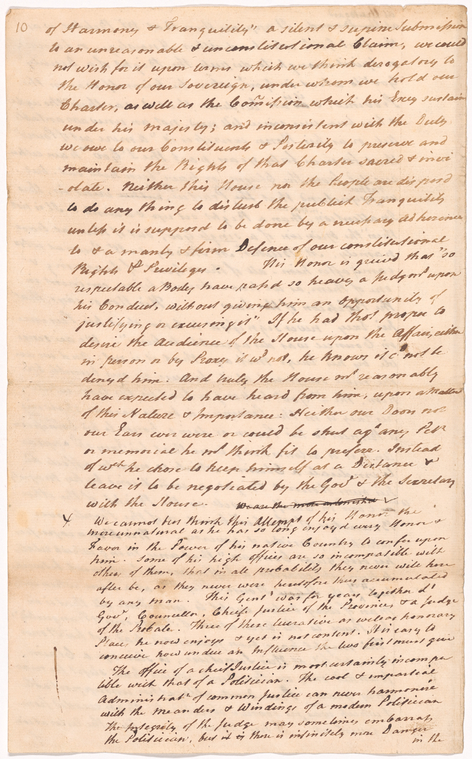 10 of Harmony & Tranquility" a silent & supine Submission
to an unreasonable & unconstitutional Claim, we could
not wish for it upon terms which we think derogatory to
the Honor of our Sovereign, under whom we hold our
Charter, as well as the Comission which his Excy sustains
under his majesty; and inconsistent with the Duty
we owe to our Constituents & Posterity to preserve and
maintain the Rights of that Charter sacred & invi
-olate. Neither this House nor the People are disposd
to do any thing to disturb the publick Tranquility
unless it is supposed to be done by a necessary Adherence
to & a manly & firm Defence of our constitutional
Rights & Privileges. His Honor is grievd that "so
respectable a Body have passd so heavy a Judgmt upon
his Conduct, without giving him an Opportunity of
justifying or excusing it" If he had thot proper to
desire the Audience of the House upon the Affair, either
in person or by Proxy it wd not, he knows it cd not be
denyd him. And truly the House mt reasonably
have expected to have heard from him, upon a Matter
of this Nature & Importance. Neither our Doors nor
our Ears ever were or could be shut agt any Petn
or memorial he mt think fit to prefer. Instead
of wch he chose to keep himself at a Distance &
leave it to be negotiated by the Govr & the Secretary
with the House.
We cannot but think this Attempt of his Honor the
more unnatural as he has so long enjoyd every Honor &
Favor in the Power of his native Country to confer upon
him. Some of his high offices are so incompatible with
others of them, that in all probability they never will here
after be, as they never were heretofore thus accumulated
by any man. This Gentn was for years together Lt
Govr, Councellor, Chief Justice of the Province, & a Judge
of the Probate. Three of these lucrative as well as honorary
Places he now enjoys & yet is not content. It is easy to
conceive how undue an Influence the two first must give
The office of a chief Justice is most certainly incompa
tible with that of a Politician. The cool & impartial
Administratn of common Justice can never harmonize
with the Meanders & Windings of a modern Politician
The Integrity of the Judge may sometimes embarrass
the Politician, but there is infinitely more Danger
in the